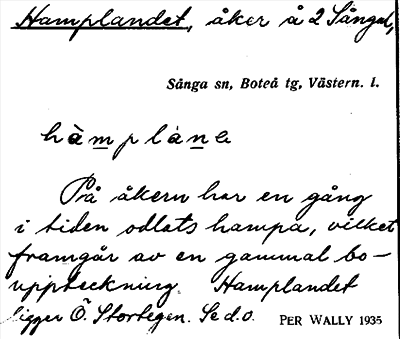 Hamplandet, åker å 2 Sånga,
Sånga sn, Boteå tg, Västern. l.
hàmpláne
På åkern har en gång
i tiden odlats hampa, vilket
framgår av en gammal bo-
uppteckning. Hamplandet
ligger Ö. Stortegen. Se d.o.
PER WALLY 1935